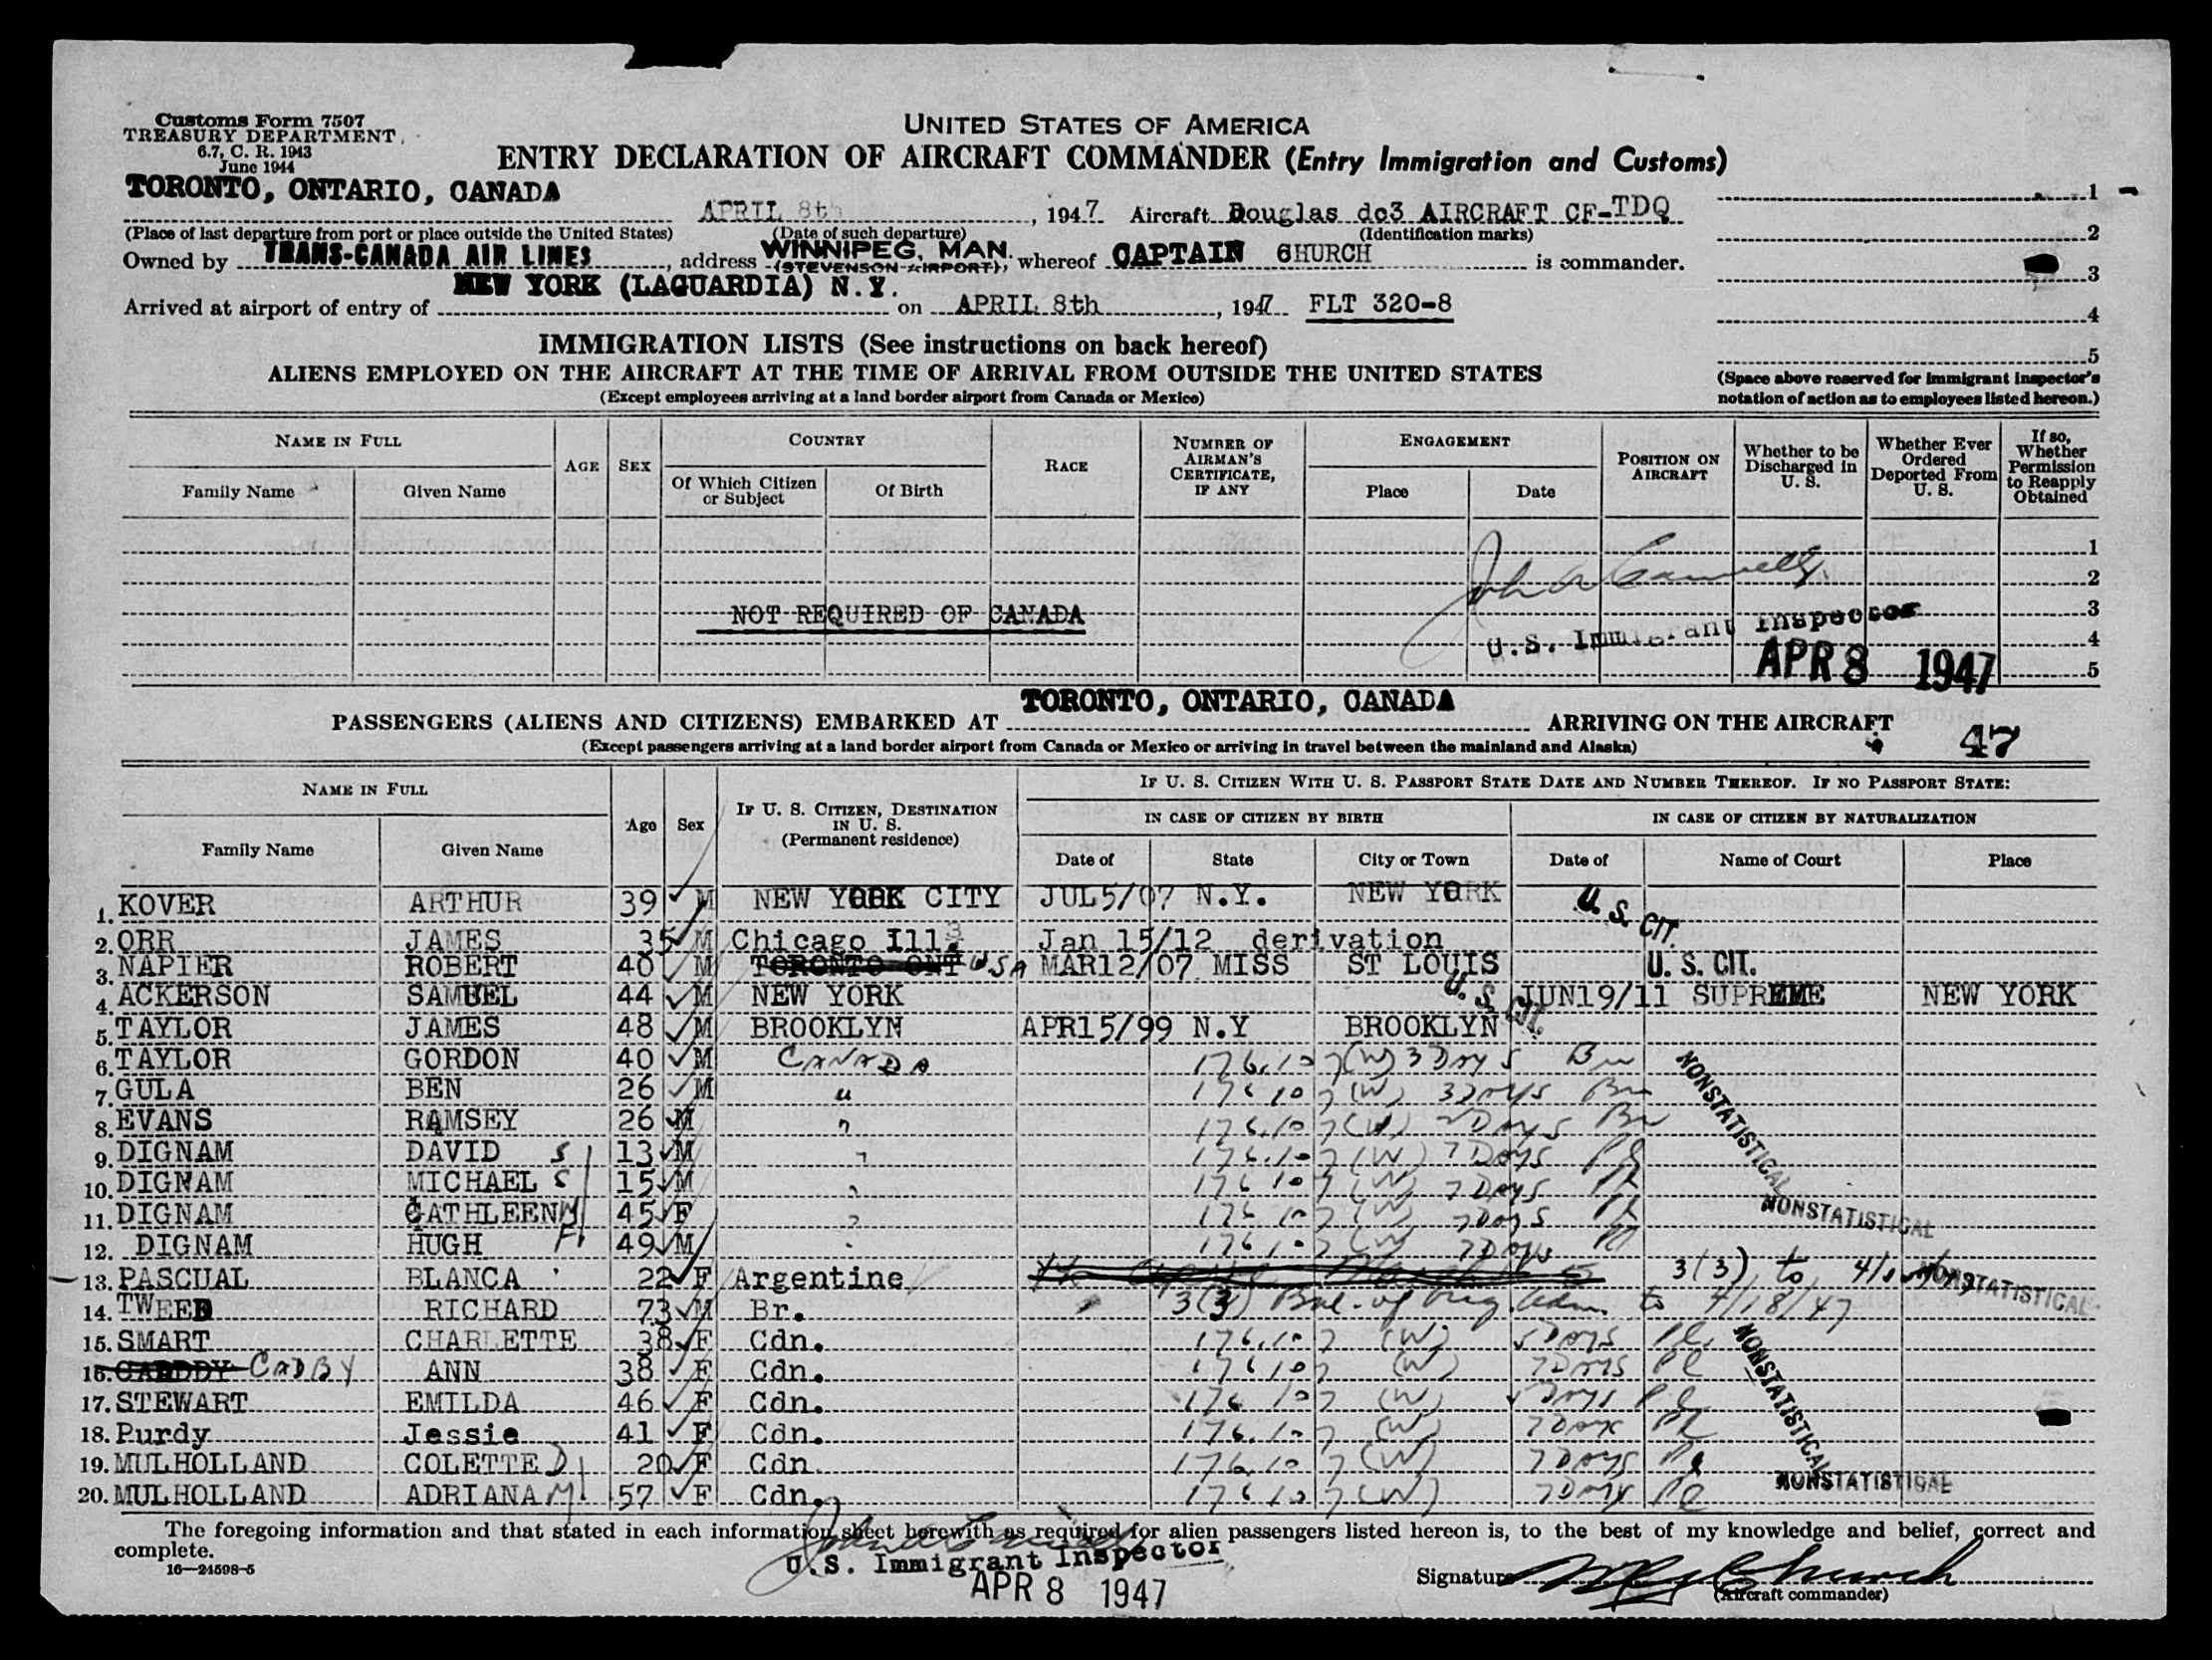 Customs Form 7507
TREASURY DEPARTMENT
6.7, C. R. 1943
June 1944
UNITED STATES OF AMERICA
ENTRY DECLARATION OF AIRCRAFT COMMANDER (Entry Immigration and Customs)
TORONTO, ONTARIO, CANADA APRIL 8th, 1947 Aircraft Douglas dc3 AIRCRAFT CF-TDQ
(Place of last departure from port or place outside the United States) (Date of such departure) (Identification marks)
Owned by TRANS-CANADA AIR LINES, address WINNIPEG, MAN. (STEVENSON AIRPORT), whereof CAPTAIN CHURCH is commander.
Arrived at airport of entry of NEW YORK (LAGUARDIA) N.Y. on APRIL 8th, 1947 FLT 320-8
1
2
3
4
5
(Space above reserved for immigrant inspector's notation of action as to employees listed hereon.)
IMMIGRATION LISTS (See instructions on back hereof)
ALIENS EMPLOYED ON THE AIRCRAFT AT THE TIME OF ARRIVAL FROM OUTSIDE THE UNITED STATES
(Except employees arriving at a land border airport from Canada or Mexico)
NAME IN FULL AGE SEX COUNTRY RACE NUMBER OF AIRMAN'S CERTIFICATE, IF ANY ENGAGEMENT POSITION ON AIRCRAFT Whether to be Discharged in U. S. Whether Ever Ordered Deported From U. S. If so, Whether Permission to Reapply Obtained
Family Name Given Name Of Which Citizen or Subject Of Birth Place Date
1
2
NOT REQUIRED OF CANADA 3
U.S. Immigrant Inspector 4
APR 8 1947 5
PASSENGERS (ALIENS AND CITIZENS) EMBARKED AT TORONTO, ONTARIO, CANADA ARRIVING ON THE AIRCRAFT 47
(Except passengers arriving at a land border airport from Canada or Mexico or arriving in travel between the mainland and Alaska)
NAME IN FULL Age Sex IF U. S. CITIZEN, DESTINATION IN U. S. (Permanent residence) IF U. S. CITIZEN WITH U. S. PASSPORT STATE DATE AND NUMBER THEREOF. IF NO PASSPORT STATE:
IN CASE OF CITIZEN BY BIRTH IN CASE OF CITIZEN BY NATURALIZATION
Family Name Given Name Date of State City or Town Date of Name of Court Place
1. KOVER ARTHUR 39 M NEW YORK CITY JUL5/07 N.Y. NEW YORK U. S. CIT.
2. ORR JAMES 35 M Chicago Ill. Jan 15/12 derivation
3. NAPIER ROBERT 40 M TORONTO ONT USA MAR12/07 MISS ST LOUIS U. S. CIT.
4. ACKERSON SAMUEL 44 M NEW YORK U. S. CIT. JUN19/11 SUPREME NEW YORK
5. TAYLOR JAMES 48 M BROOKLYN APR15/99 N.Y BROOKLYN
6. TAYLOR GORDON 40 M CANADA 176.107 (W) 3 DAYS Bu NONSTATISTICAL
7. GULA BEN 26 M " 176.107 (W) 3 DAYS Bu
8. EVANS RAMSEY 26 M " 176.107 (W) 2 DAYS Bu
9. DIGNAM DAVID S 13 M " 176.107 (W) 7 DAYS Pl
10. DIGNAM MICHAEL S 15 M " 176.107 (W) 7 DAYS Pl
11. DIGNAM CATHLEEN M 45 F " 176.107 (W) 7 DAYS Pl NONSTATISTICAL
12. DIGNAM HUGH F 49 M " 176.107 (W) 7 DAYS Pl
13. PASCUAL BLANCA 22 F Argentine 3(3) to NONSTATISTICAL
14. TWEED RICHARD 73 M Br. 3(3) adm. to 4/18/47
15. SMART CHARLETTE 38 F Cdn. 176.107 (W) 5 DAYS Pl NONSTATISTICAL
16. CADBY ANN 38 F Cdn. 176.107 (W) 7 DAYS Pl
17. STEWART EMILDA 46 F Cdn. 176.107 (W) DAYS Pl
18. Purdy Jessie 41 F Cdn. 176.107 (W) 7 DAYS Pl
19. MULHOLLAND COLETTE D 20 F Cdn. 176.107 (W) 7 DAYS Pl
20. MULHOLLAND ADRIANA M 57 F Cdn. 176.107 (W) 7 DAYS Pl NONSTATISTICAL
The foregoing information and that stated in each information sheet herewith as required for alien passengers listed hereon is, to the best of my knowledge and belief, correct and
complete.
16—24598-5
U.S. Immigrant Inspector
APR 8 1947
Signature Church
(Aircraft commander)